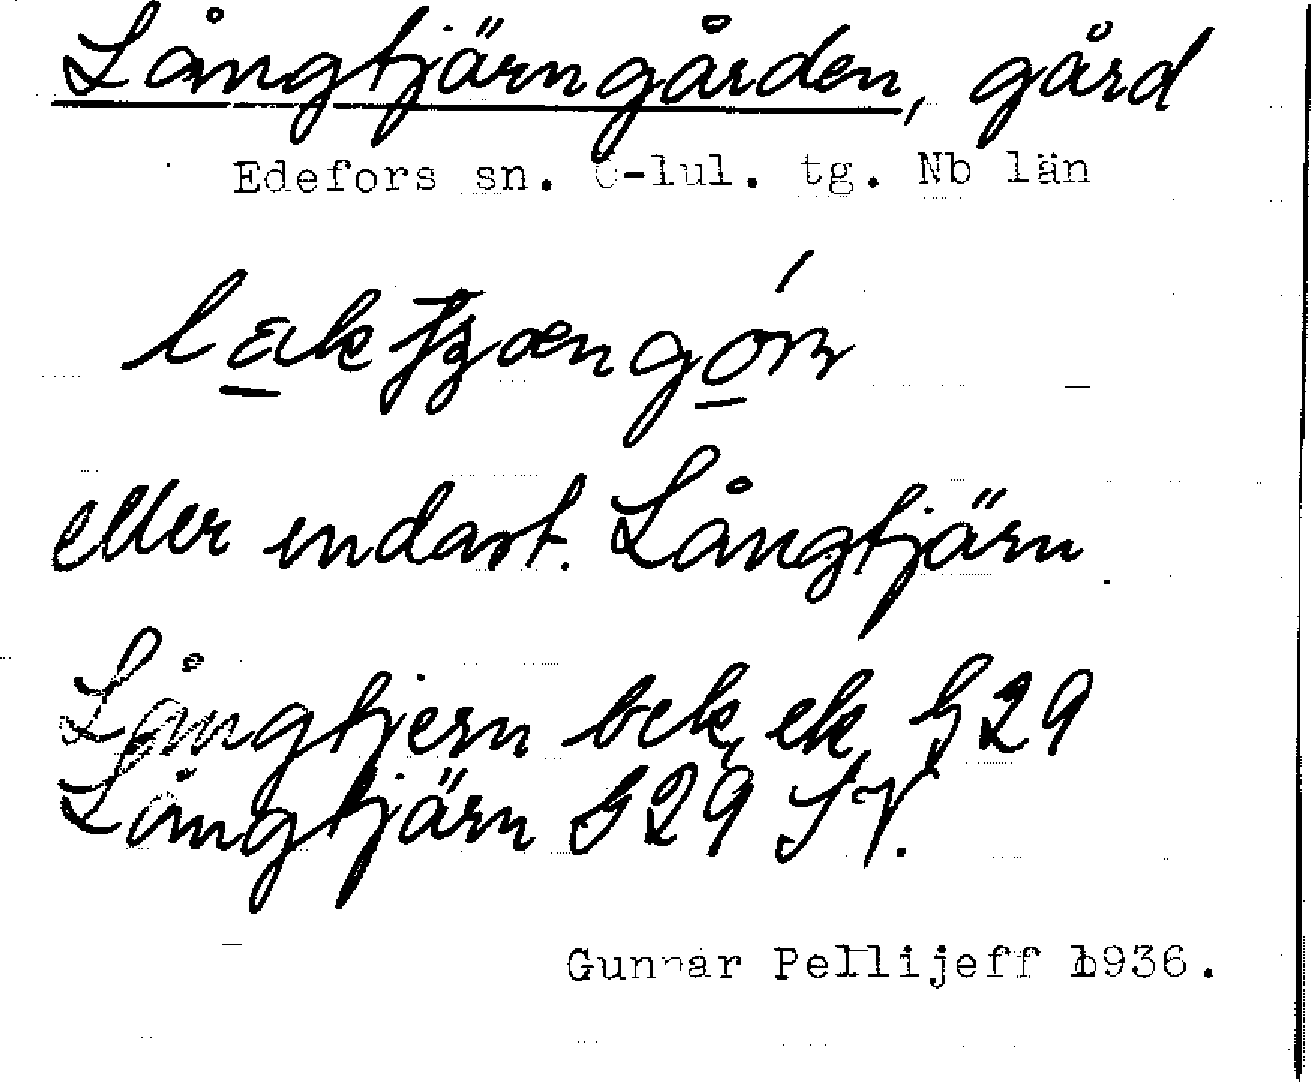 Långtjärngården, gård
Edefors sn. Ö-lul. tg. Nb län
eller endast. Långtjärn
Långtjern bek, ek, G29
Långtjärn G29 SV.
Gunnar Pellijeff 1936.